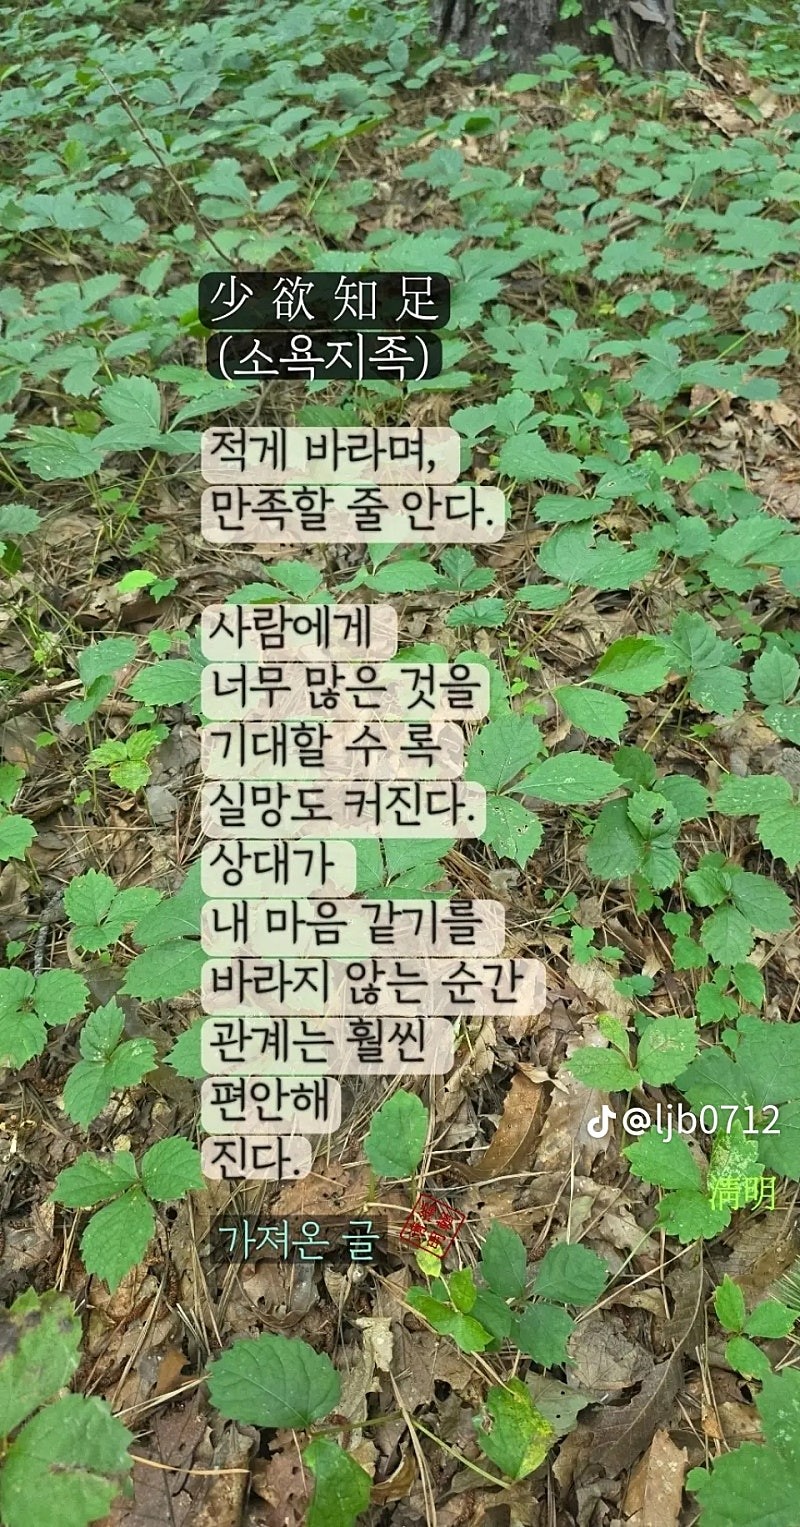 少欲知足
(소욕지족)
적게 바라며,
만족할 줄 안다.
사람에게
너무 많은 것을
기대할 수 록
실망도 커진다.
상대가
내 마음 같기를
바라지 않는 순간
관계는 훨씬
편안해
진다.
@ljb0712
清明
가져온 글